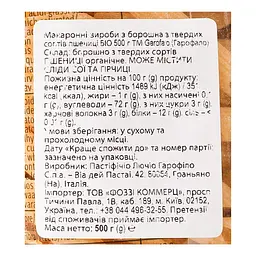 Макаронні вироби з борошна з твердих
сортів пшениці БІО 500 г ТМ Garofalo (Гарофало)
Склад: борошно з твердих сортів
ПШЕНИЦІ органічне. МОЖЕ МІСТИТИ
СЛІДИ СОЇ ТА ГІРЧИЦІ
Поживна цінність на 100 г (g) продукту:
енергетична цінність 1489 кДж (kJ) /
351 ккал (kcal), жири - 1 г (g), з них насичені 0,
г (g), вуглеводи – 72 г (g), з них цукри 3 г (g),
харчові волокна 3 г (g), білки – 12 г (g), сіль <
г (g)
Умови зберігання: у сухому та
прохолодному місці.
Дату «Краще спожити до» та номер партії:
зазначено на упаковці.
Виробник: Пастіфічіо Лючіо Гарофало
С.п.а. – Віа деі Пастаі, 42, 80054, Граньяно
(На), Італія.
Імпортер: ТОВ «ФОЗЗІ КОММЕРЦ», просп.
Тичини Павла, 1В, кв. 118, м. Київ, 02152,
Україна, тел.: +38 044 496-32-55. Претензії
від споживачів приймає імпортер.
Маса нетто: 500 г (g)